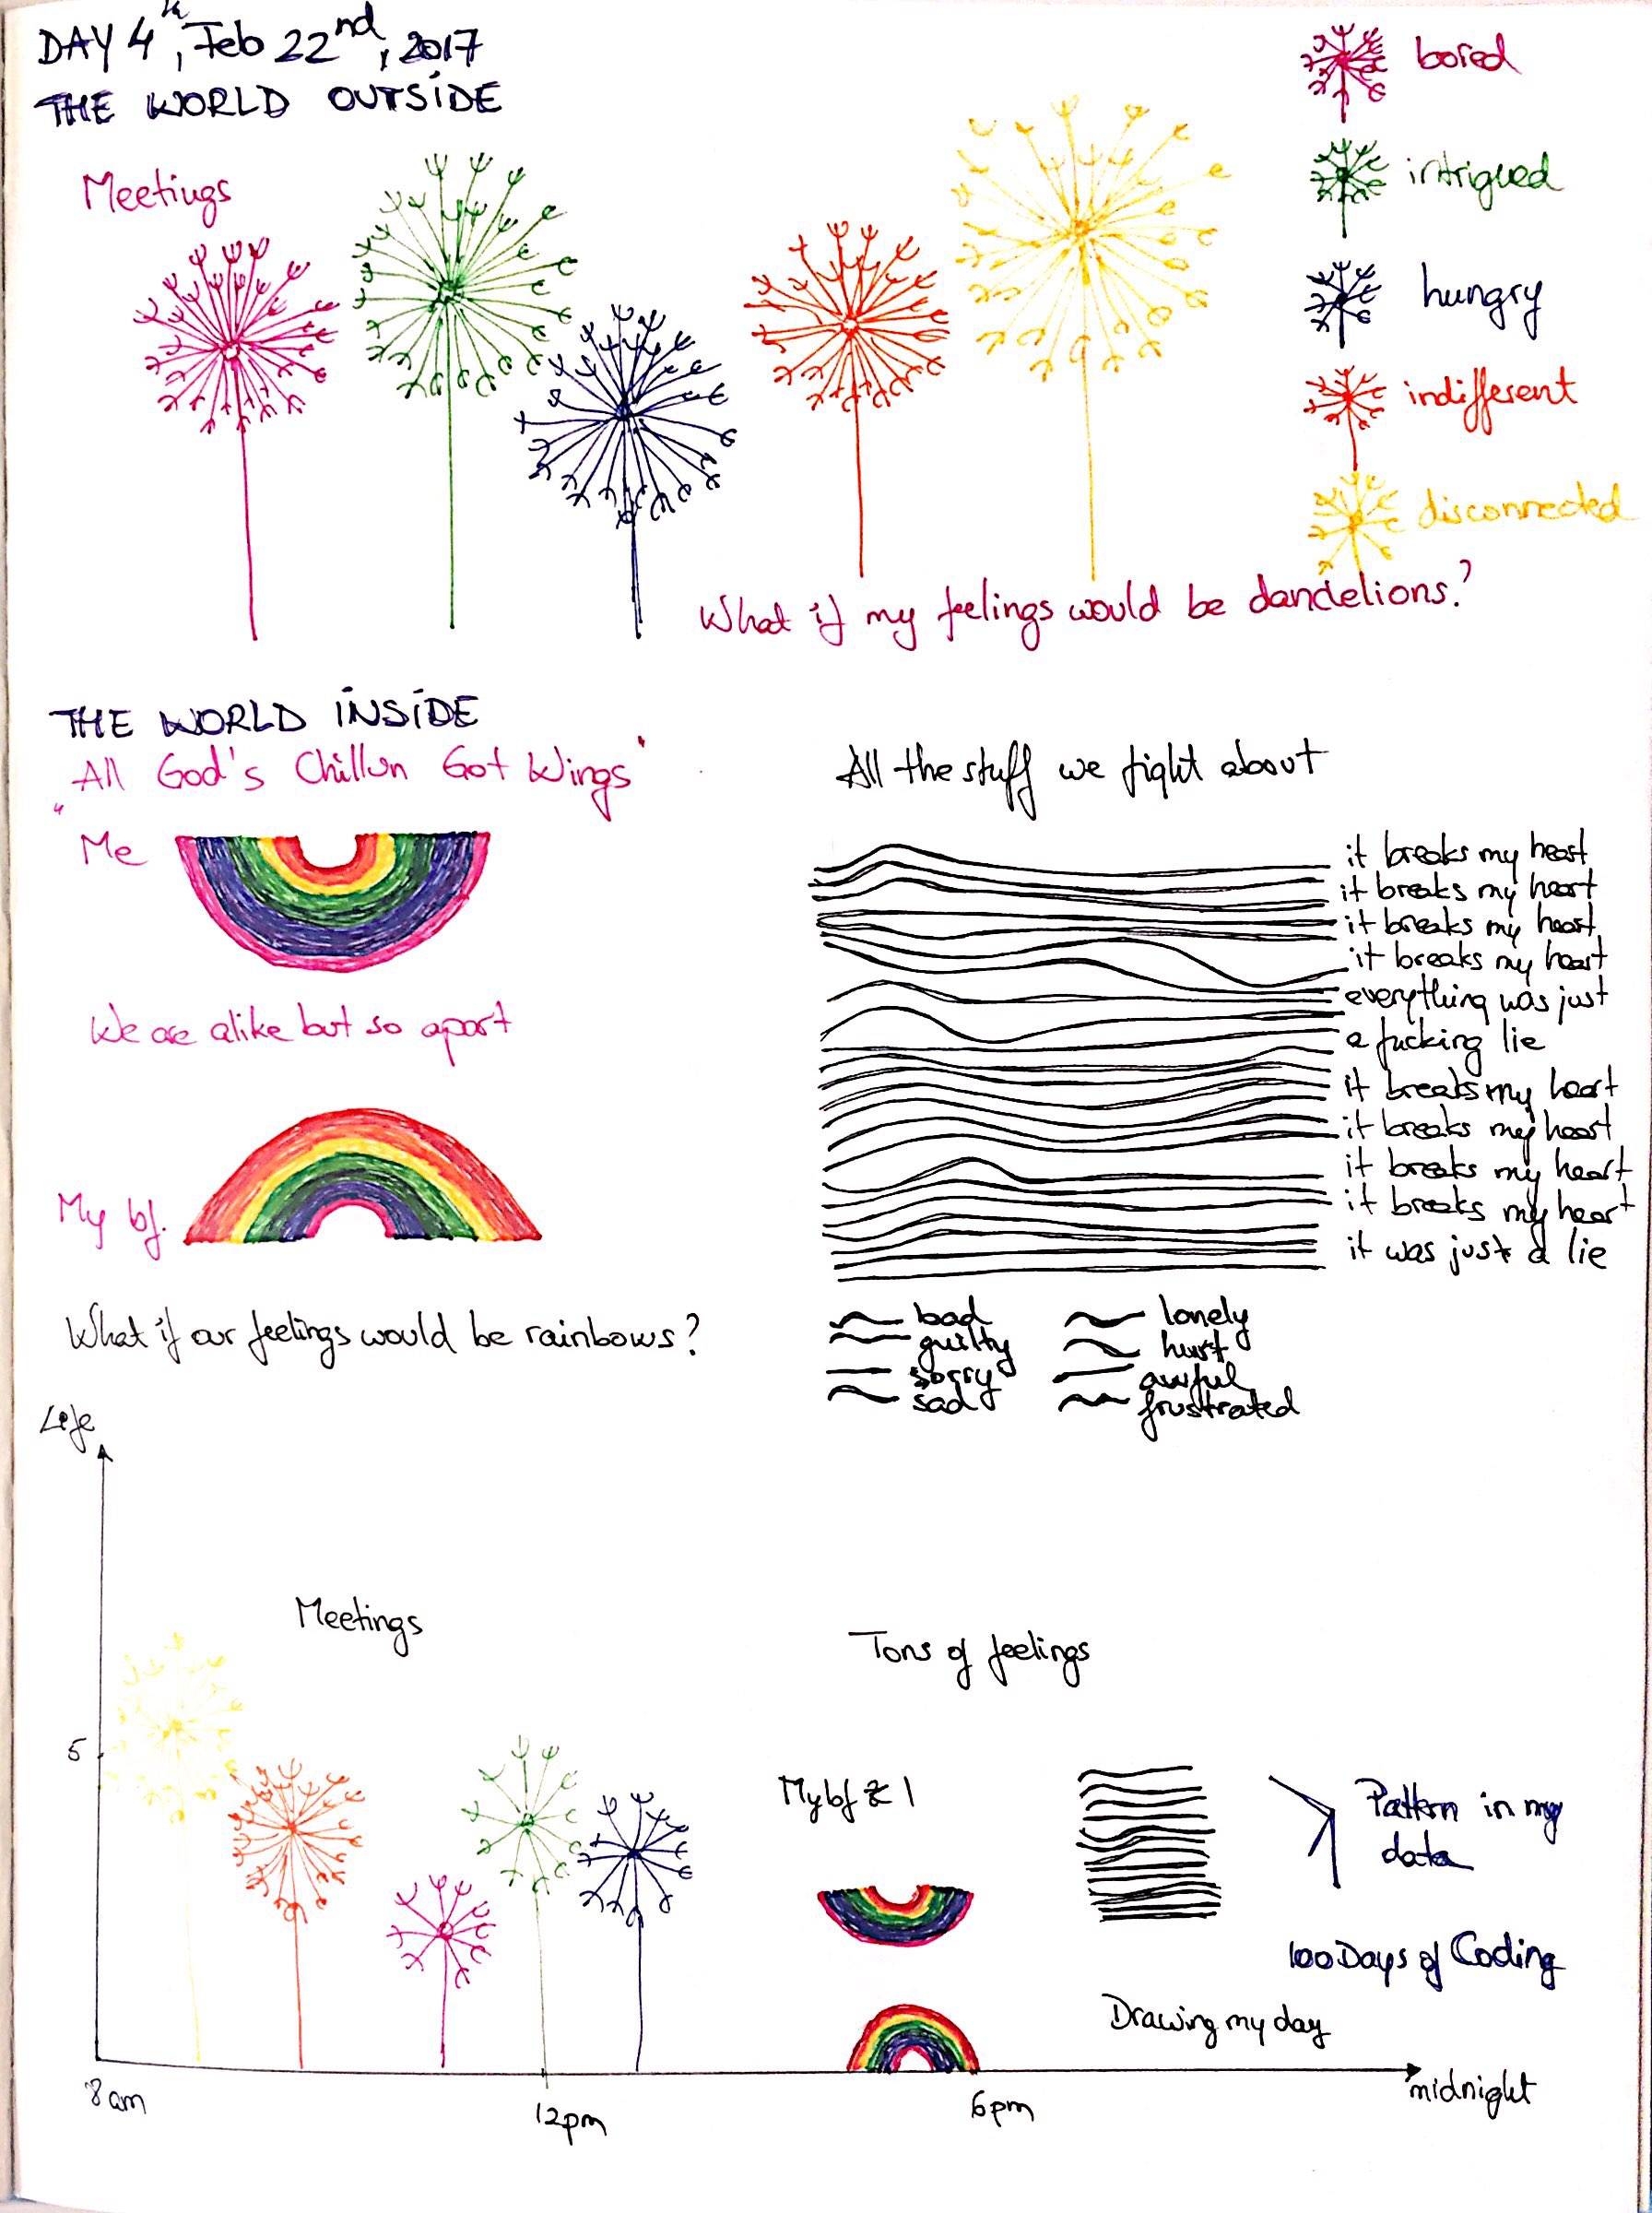 DAY 4th, Feb 22nd, 2017
THE WORLD OUTSIDE
Meetings
bored
intrigued
hungry
indifferent
disconnected
What if my feelings would be dandelions?
THE WORLD INSIDE
"All God's Chillun Got Wings"
Me
We are alike but so apart
My bf.
What if our feelings would be rainbows?
All the stuff we fight about
it breaks my heart
it breaks my heart
it breaks my heart
it breaks my heart
everything was just
a fucking lie
it breaks my heart
it breaks my heart
it breaks my heart
it breaks my heart
it was just a lie
bad
guilty
sorry
sad
lonely
hurt
awful
frustrated
Life
5
Meetings
Tons of feelings
My bf & I
Pattern in my
data
100 Days of Coding
Drawing my day
8am
12pm
6pm
midnight